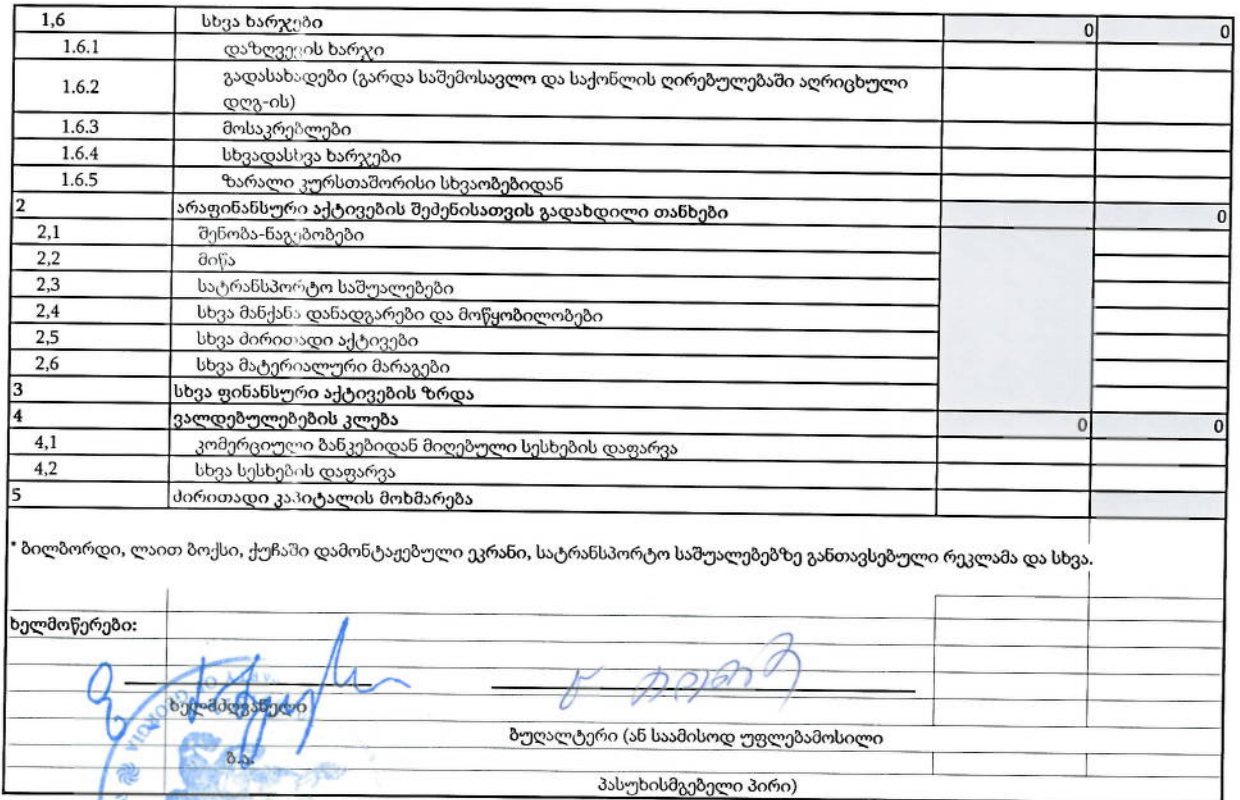 1,6 სხვა ხარჯები 0 0
1.6.1 დაზღვევის ხარჯი
1.6.2 გადასახადები (გარდა საშემოსავლო და საქონლის ღირებულებაში აღრიცხული
დღგ-ის)
1.6.3 მოსაკრებლები
1.6.4 სხვადასხვა ხარჯები
1.6.5 ზარალი კურსთაშორისი სხვაობებიდან
2 არაფინანსური აქტივების შეძენისათვის გადახდილი თანხები 0
2,1 შენობა-ნაგებობები
2,2 მიწა
2,3 სატრანსპორტო საშუალებები
2,4 სხვა მანქანა დანადგარები და მოწყობილობები
2,5 სხვა ძირითადი აქტივები
2,6 სხვა მატერიალური მარაგები
3 სხვა ფინანსური აქტივების ზრდა
4 ვალდებულებების კლება 0 0
4,1 კომერციული ბანკებიდან მიღებული სესხების დაფარვა
4,2 სხვა სესხების დაფარვა
5 ძირითადი კაპიტალის მოხმარება
* ბილბორდი, ლაით ბოქსი, ქუჩაში დამონტაჟებული ეკრანი, სატრანსპორტო საშუალებებზე განთავსებული რეკლამა და სხვა.
ხელმოწერები:
ხელმძღვანელი
ბუღალტერი (ან საამისოდ უფლებამოსილი
ბ.ა.
პასუხისმგებელი პირი)
GEORGIA